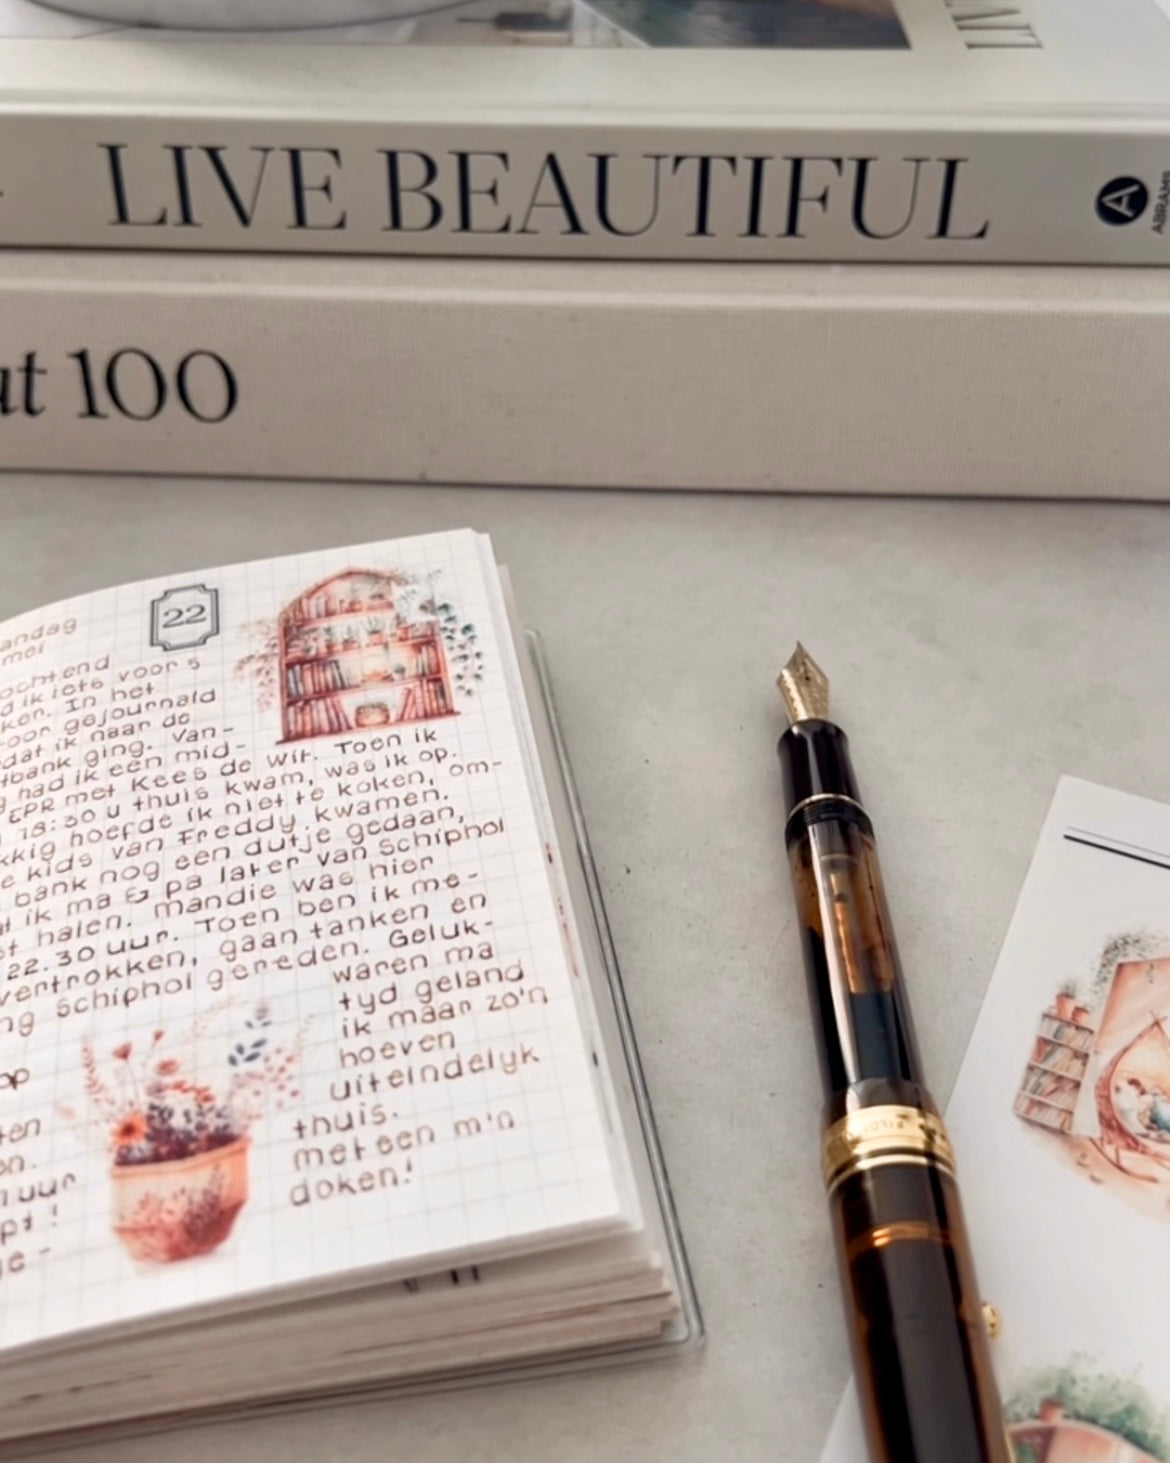 LIVE BEAUTIFUL
ABRAMS
100
22
mei
voor 5
ik iets
In het
gejournald
dat ik naar de
bank ging. Van-
had ik een mid-
EPR met Kees de Wit. Toen ik
18:30 u thuis kwam, was ik op.
hoefde ik niet te koken, om-
kids van Freddy kwamen.
bank nog een dutje gedaan,
ik ma & pa later van Schiphol
halen. Mandie was hier
22.30 uur. Toen ben ik me-
vertrokken, gaan tanken en
Schiphol gereden. Geluk-
waren ma
tyd geland
ik maar zo'n
op
hoeven
uiteindelyk
thuis.
met een m'n
uur
doken!
PILOT